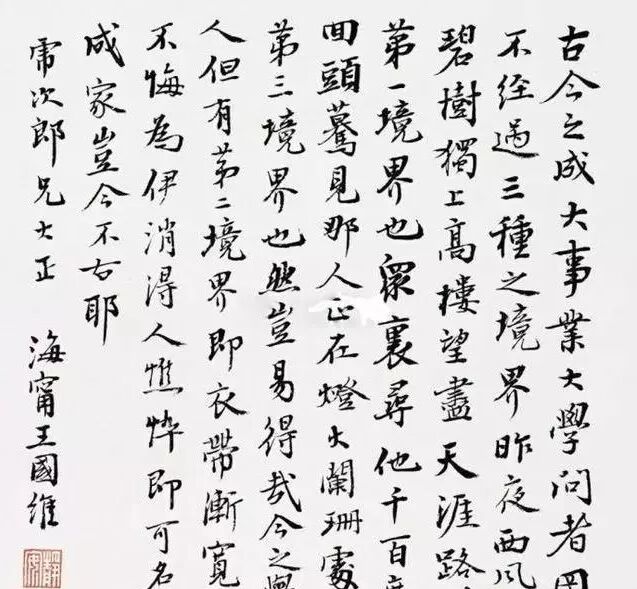 古今之成大事業大學問者罔
不經過三種之境界昨夜西風
碧樹獨上高樓望盡天涯路
第一境界也眾裏尋他千百度
回頭驀見那人正在燈火闌珊處
第三境界也然豈易得哉今之學
人但有第二境界即衣帶漸寬
不悔為伊消得人憔悴即可名
成家豈今不古耶
乕次郎兄大正
海甯王國維
靜安